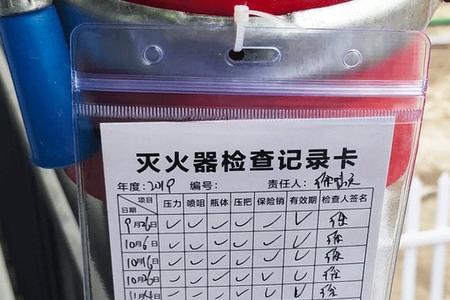 灭火器检查记录卡
年度：2019 编号： 责任人：徐
项目 日期 压力 喷咀 瓶体 压把 保险销 有效期 检查人签名
9月26日 ✓ ✓ ✓ ✓ ✓ ✓ 徐
10月6日 ✓ ✓ ✓ ✓ ✓ ✓ 徐
10月16日 ✓ ✓ ✓ ✓ ✓ ✓ 徐
10月26日 ✓ ✓ ✓ ✓ ✓ ✓ 徐
11月4日 ✓ ✓ ✓ ✓ ✓ ✓ 徐